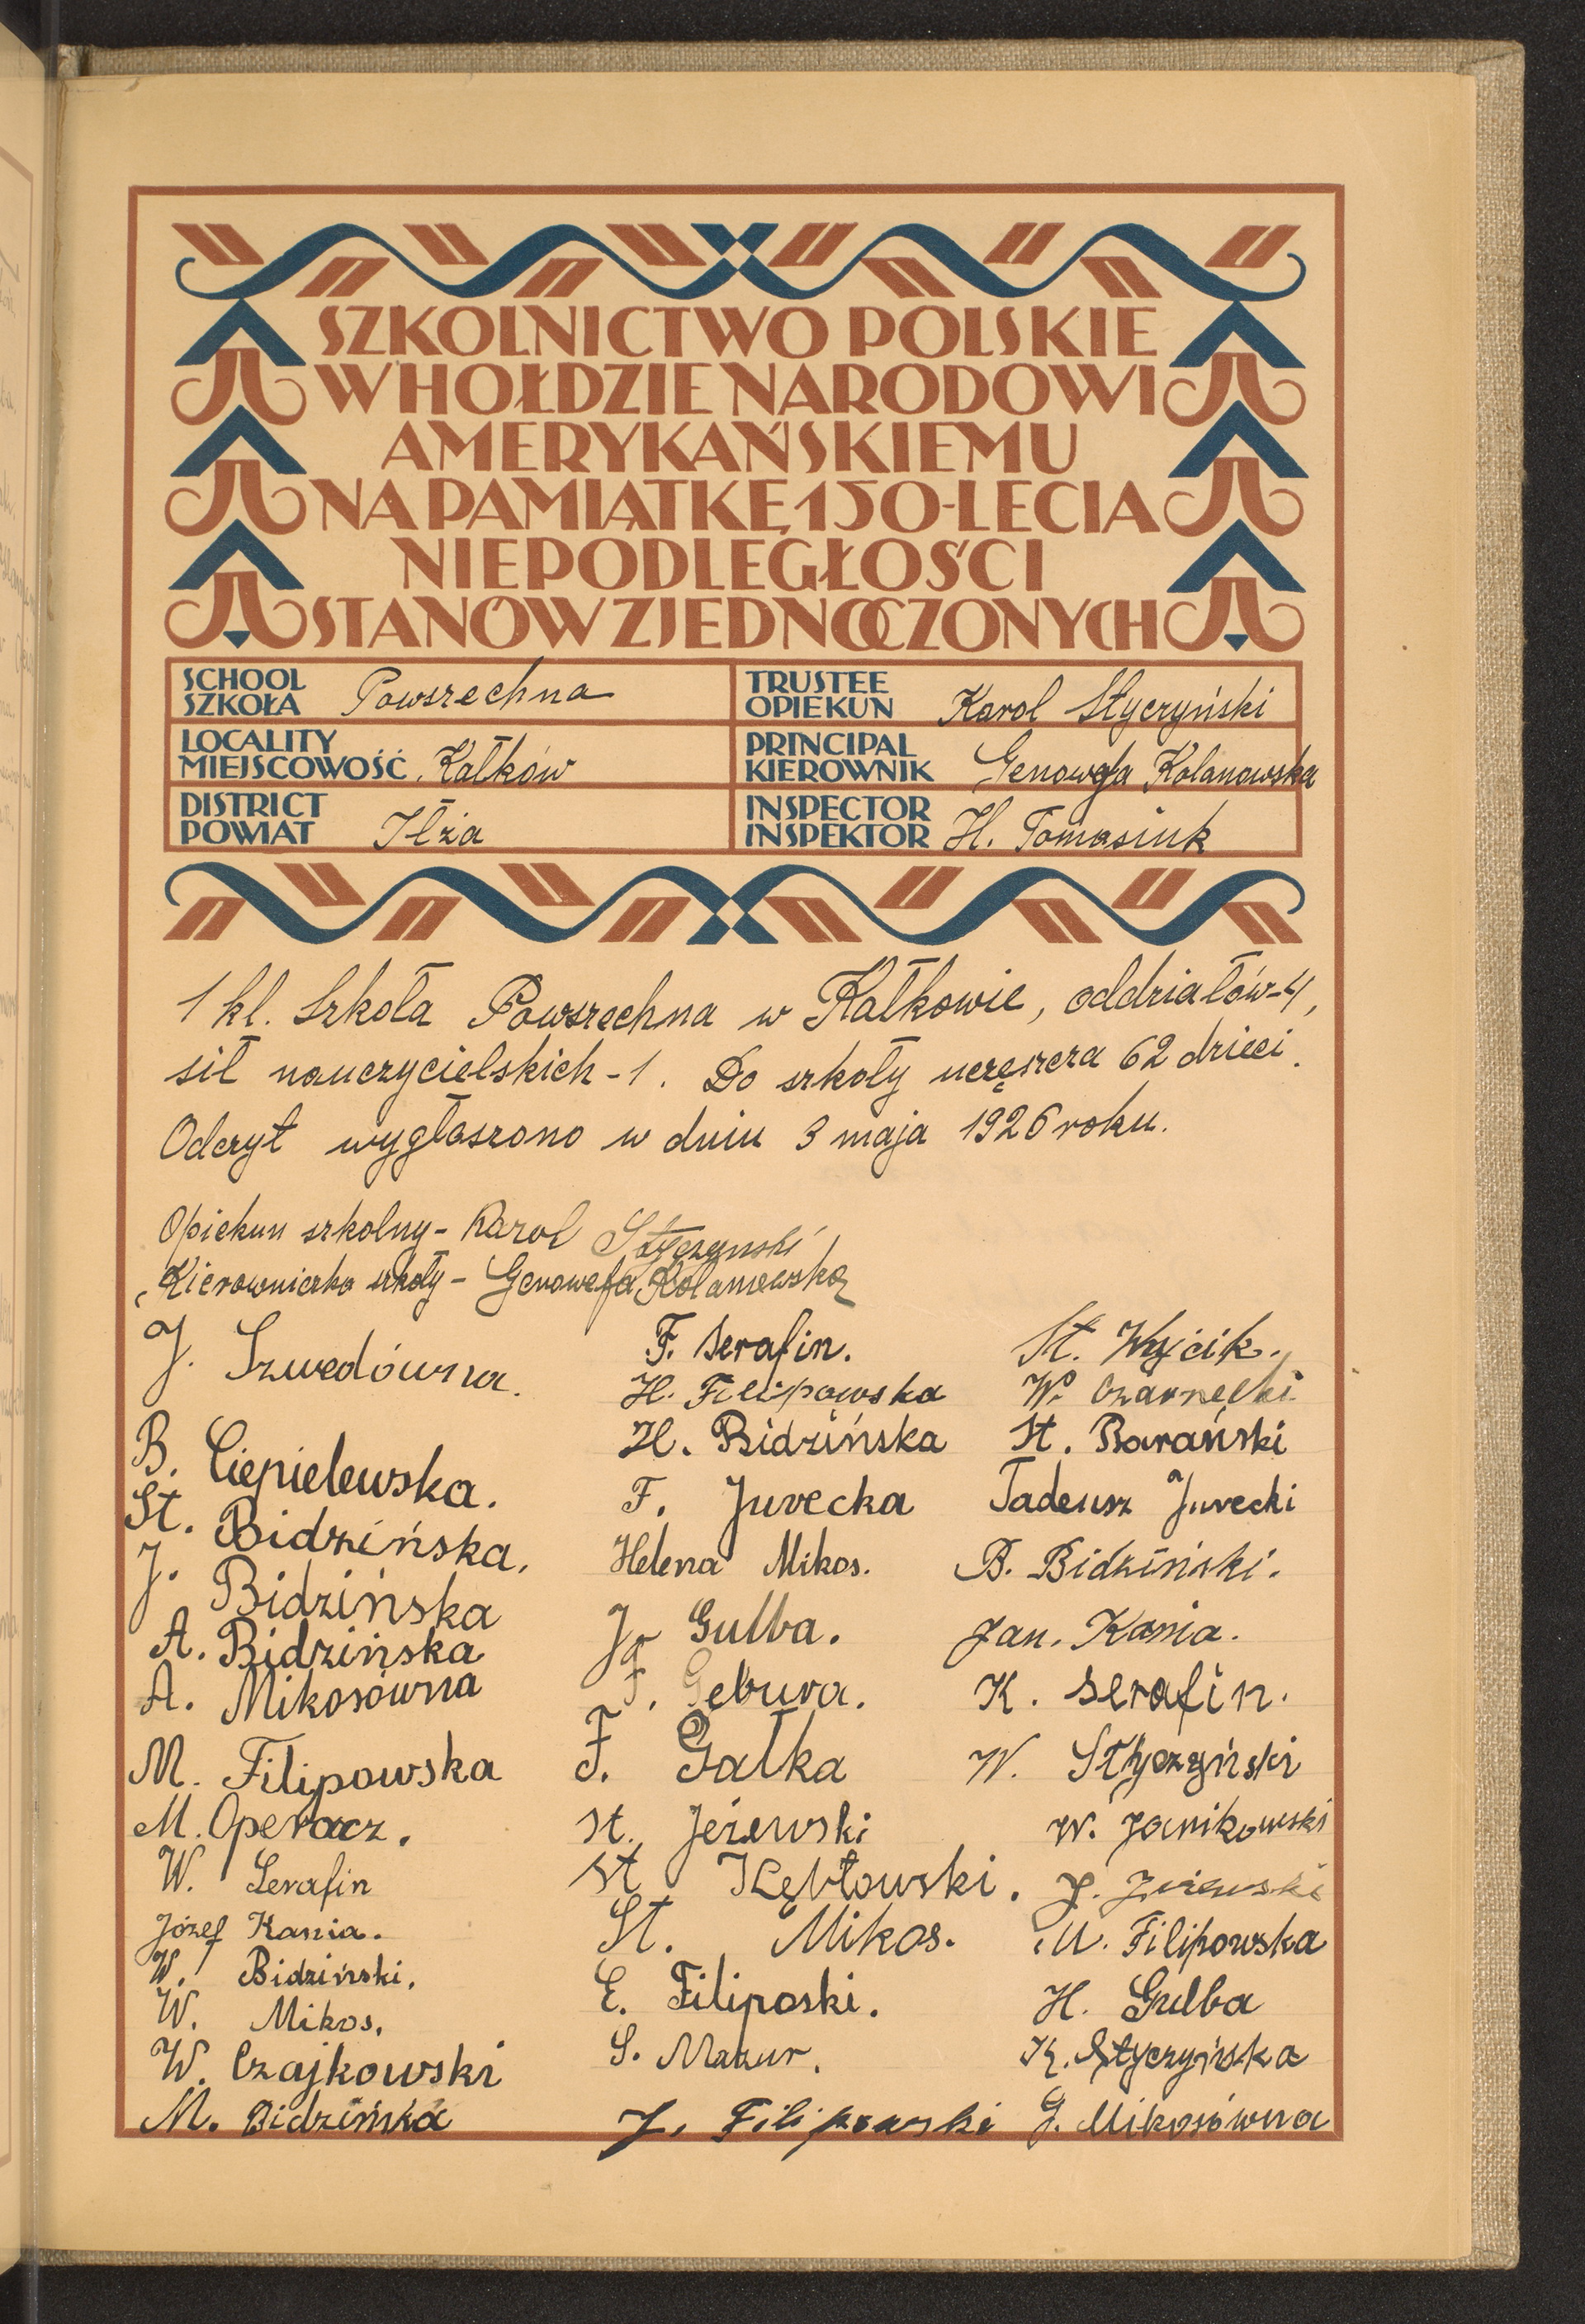 SZKOLNICTWO POLSKIE
W HOŁDZIE NARODOWI
AMERYKAŃSKIEMU
NA PAMIĄTKĘ 150-LECIA
NIEPODLEGŁOŚCI
STANÓW ZJEDNOCZONYCH
SCHOOL
SZKOŁA Powszechna
TRUSTEE
OPIEKUN Karol Styczyński
LOCALITY
MIEJSCOWOŚĆ Kałków
PRINCIPAL
KIEROWNIK Genowefa Kolanowska
DISTRICT
POWIAT Iłża
INSPECTOR
INSPEKTOR H. Tomasiuk
1 kl. Szkoła Powszechna w Kałkowie, oddziałów-4,
sił nauczycielskich-1. Do szkoły uczęszcza 62 dzieci.
Odczyt wygłoszono w dniu 3 maja 1926 roku.
Opiekun szkolny - Karol Styczynski
Kierowniczka szkoły - Genowefa Kolanowska
J. Szwedówna.
B. Ciepielewska.
St. Bidzińska.
J. Bidzińska
A. Bidzińska
A. Mikosówna
M. Filipowska
M. Operacz.
W. Serafin
Józef Kania.
W. Bidziński.
W. Mikos.
W. Czajkowski
M. Bidzińska
F. Serafin.
H. Filipowska
H. Bidzińska
F. Jurecka
Helena Mikos.
J. Gulba.
F. Gebura.
F. Gałka
St. Jeżewski
St Kębłowski.
St. Mikos.
E. Filiposki.
S. Mazur.
J. Filipowski
St. Wójcik.
W. Czarnecki
St. Barański
Tadeusz Jurecki
B. Bidziński.
Jan. Kania.
K. Serafin.
W. Styczyński
W. Janikowski
J.
M. Filipowska
H. Gulba
K. Styczyńska
G. Mikosówna